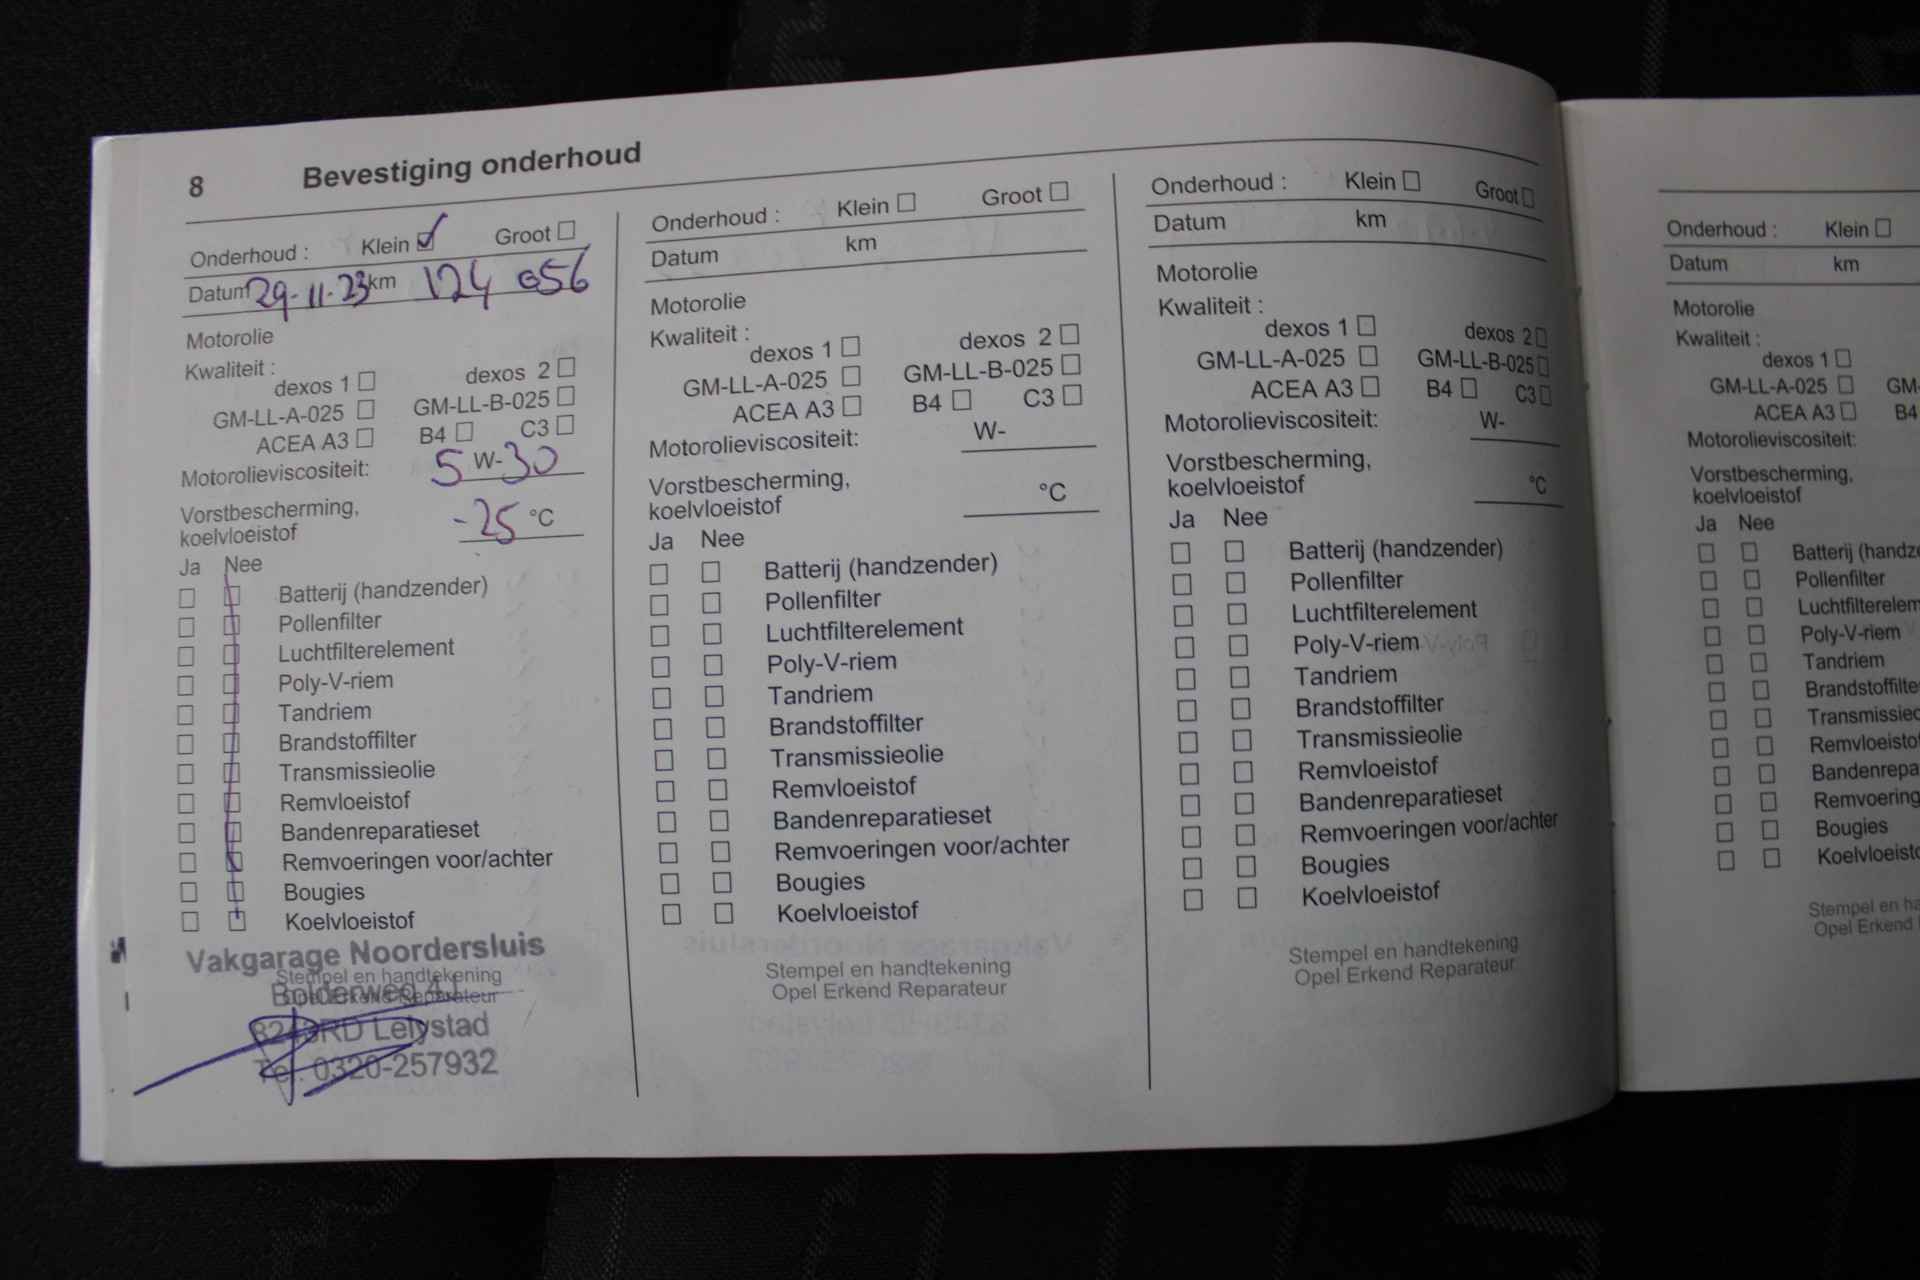 8 Bevestiging onderhoud
Onderhoud : Klein Groot
Datum 29-11-23 km 124 056
Motorolie
Kwaliteit :
dexos 1 dexos 2
GM-LL-A-025 GM-LL-B-025
ACEA A3 B4 C3
Motorolieviscositeit: 5 W-30
Vorstbescherming,
koelvloeistof -25 °C
Ja Nee
Batterij (handzender)
Pollenfilter
Luchtfilterelement
Poly-V-riem
Tandriem
Brandstoffilter
Transmissieolie
Remvloeistof
Bandenreparatieset
Remvoeringen voor/achter
Bougies
Koelvloeistof
Vakgarage Noordersluis
Stempel en handtekening
Bolderweg 41
Opel Erkend Reparateur
8243RD Lelystad
Tel. 0320-257932
Onderhoud : Klein Groot
Datum km
Motorolie
Kwaliteit :
dexos 1 dexos 2
GM-LL-A-025 GM-LL-B-025
ACEA A3 B4 C3
Motorolieviscositeit: W-
Vorstbescherming,
koelvloeistof °C
Ja Nee
Batterij (handzender)
Pollenfilter
Luchtfilterelement
Poly-V-riem
Tandriem
Brandstoffilter
Transmissieolie
Remvloeistof
Bandenreparatieset
Remvoeringen voor/achter
Bougies
Koelvloeistof
Stempel en handtekening
Opel Erkend Reparateur
Onderhoud : Klein Groot
Datum km
Motorolie
Kwaliteit :
dexos 1 dexos 2
GM-LL-A-025 GM-LL-B-025
ACEA A3 B4 C3
Motorolieviscositeit: W-
Vorstbescherming,
koelvloeistof °C
Ja Nee
Batterij (handzender)
Pollenfilter
Luchtfilterelement
Poly-V-riem
Tandriem
Brandstoffilter
Transmissieolie
Remvloeistof
Bandenreparatieset
Remvoeringen voor/achter
Bougies
Koelvloeistof
Stempel en handtekening
Opel Erkend Reparateur
Onderhoud : Klein
Datum km
Motorolie
Kwaliteit :
dexos 1
GM-LL-A-025 GM-
ACEA A3 B4
Motorolieviscositeit:
Vorstbescherming,
koelvloeistof
Ja Nee
Batterij (handz
Pollenfilter
Luchtfilterelem
Poly-V-riem
Tandriem
Brandstoffilte
Transmissieo
Remvloeisto
Bandenrepa
Remvoering
Bougies
Koelvloeisto
Stempel en ha
Opel Erkend